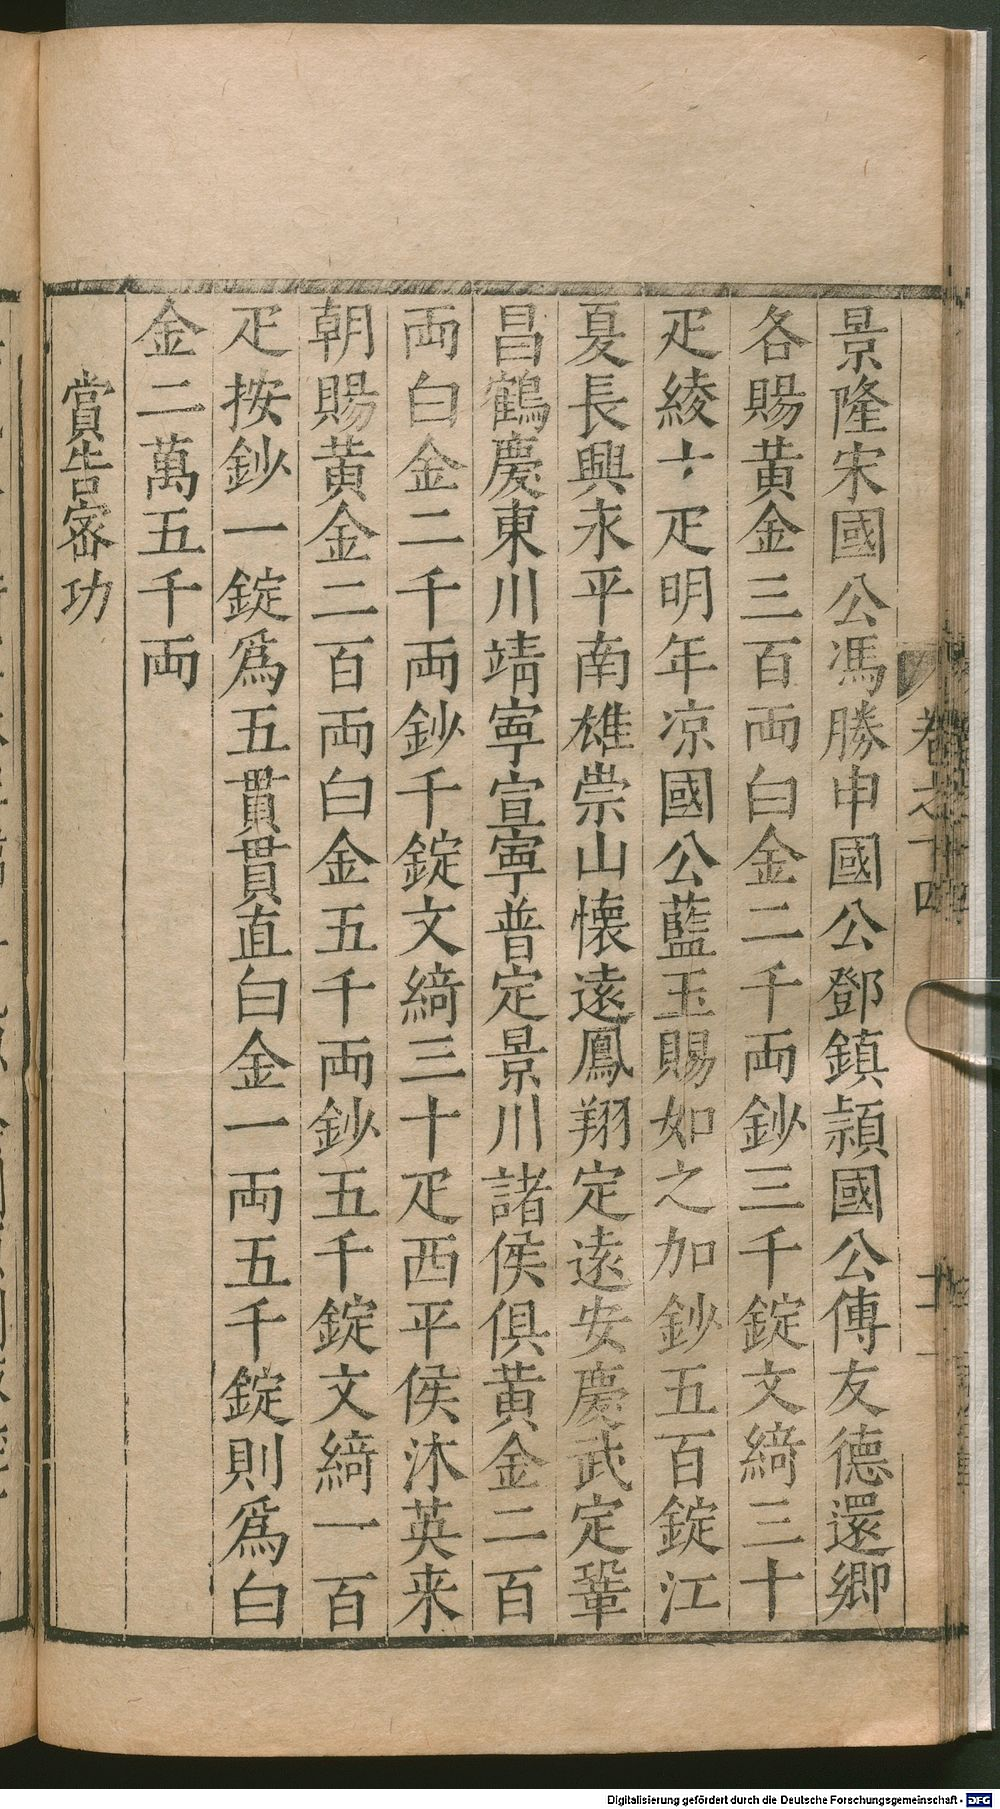 景隆宋國公馮勝申國公鄧鎮頴國公傅友德還鄉
各賜黃金三百両白金二千両鈔三千錠文綺三十
疋綾十疋明年凉國公藍玉賜如之加鈔五百錠江
夏長興永平南雄崇山懷遠鳳翔定遠安慶武定鞏
昌鶴慶東川靖寧宣寧普定景川諸侯俱黃金二百
両白金二千両鈔千錠文綺三十疋西平侯沐英来
朝賜黃金二百両白金五千両鈔五千錠文綺一百
疋按鈔一錠為五貫貫直白金一両五千錠則為白
金二萬五千両
賞告密功
卷之十四
Digitalisierung gefördert durch die Deutsche Forschungsgemeinschaft - DFG